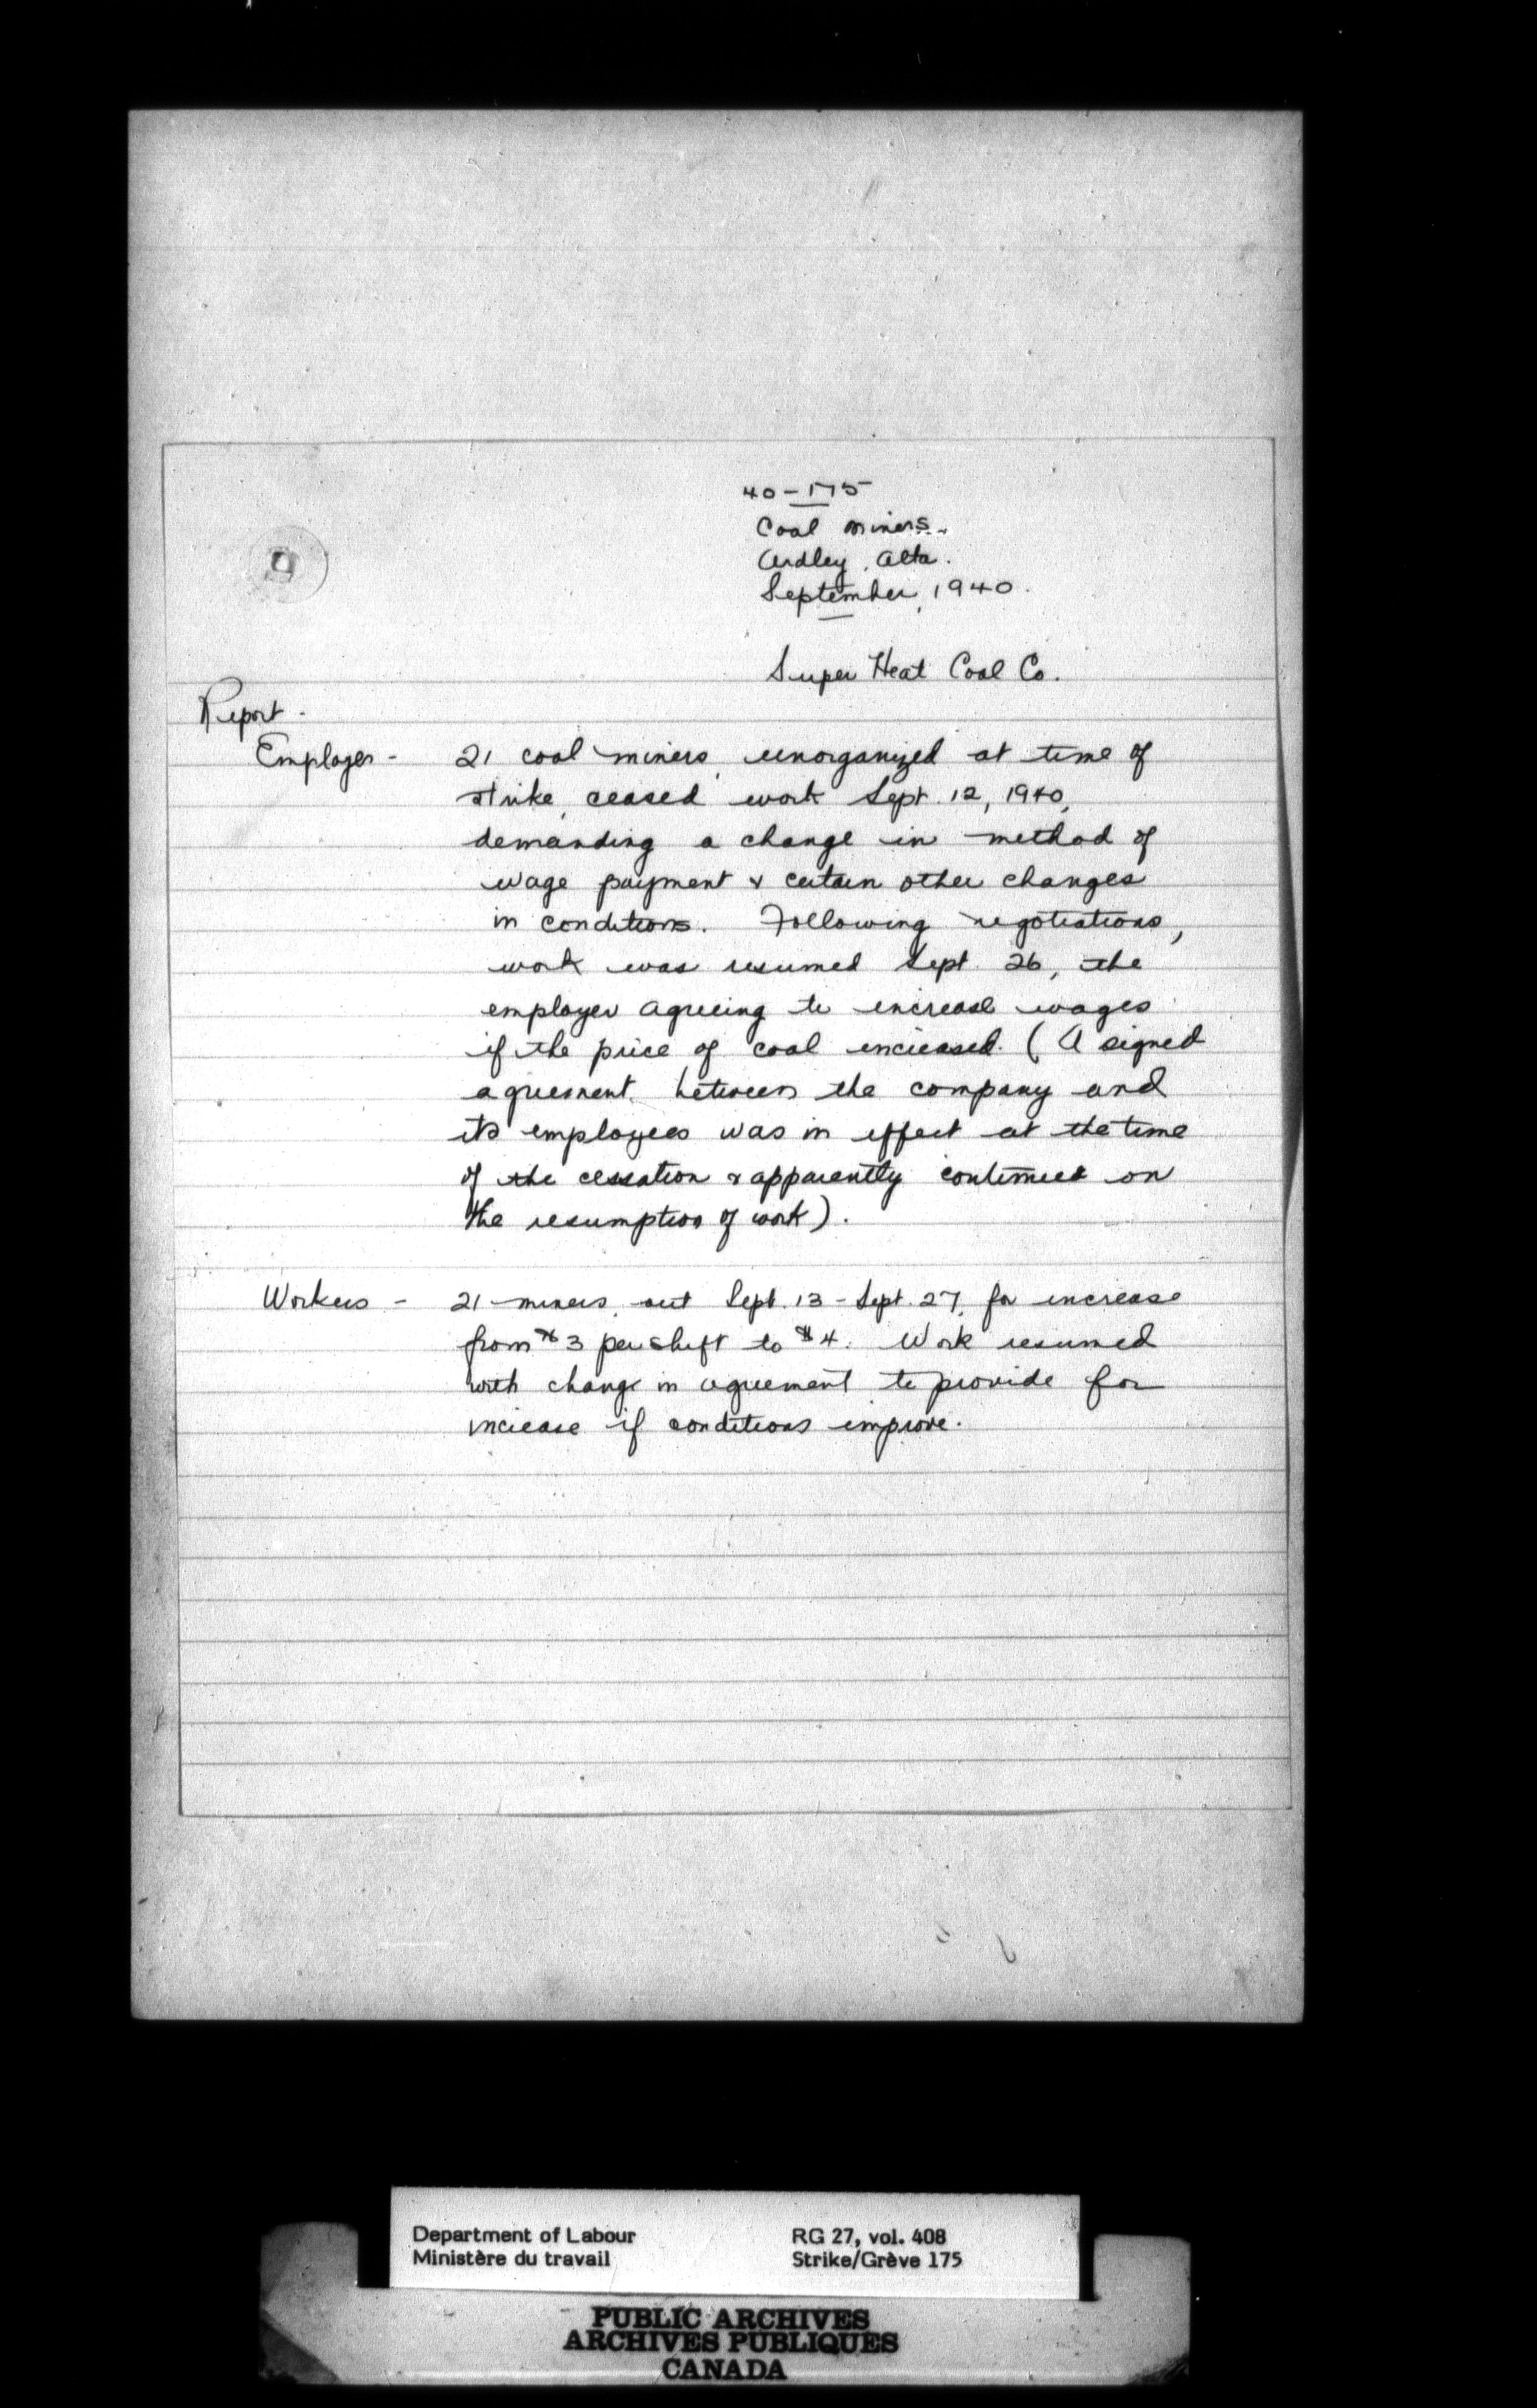 40-175
Coal miners
Ardley, Alta.
September, 1940.
Super Heat Coal Co.
Report -
Employer - 21 coal miners, unorganized at time of
strike, ceased work Sept. 12, 1940,
demanding a change in method of
wage payment & certain other changes
in conditions. Following negotiations,
work was resumed Sept. 26, the
employer agreeing to increase wages
if the price of coal increased. (A signed
agreement between the company and
its employees was in effect at the time
of the cessation & apparently continued on
the resumption of work).
Workers - 21 miners, out Sept. 13 - Sept. 27, for increase
from $3 per shift to $4. Work resumed
with change in agreement to provide for
increase if conditions improve.
Department of Labour RG 27, vol. 408
Ministère du travail Strike/Grève 175
PUBLIC ARCHIVES
ARCHIVES PUBLIQUES
CANADA